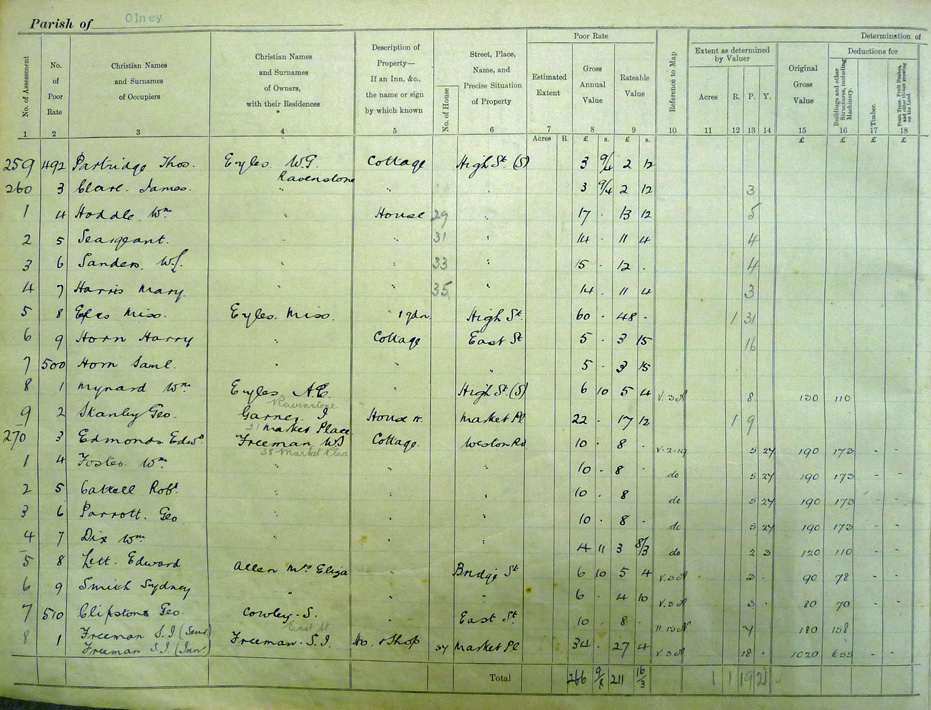 Parish of Olney
Poor Rate
Determination of
No. of Assessment
No. of Poor Rate
Christian Names and Surnames of Occupiers
Christian Names and Surnames of Owners, with their Residences
Description of Property— If an Inn, &c., the name or sign by which known
No. of House
Street, Place, Name, and Precise Situation of Property
Estimated Extent
Gross Annual Value
Rateable Value
Reference to Map
Extent as determined by Valuer
Acres R. P. Y.
Original Gross Value
Deductions for
Buildings and other Structures, including Machinery.
Timber.
Fruit Trees, Fruit Bushes, and other things growing on the Land.
1 2 3 4 5 6 7 8 9 10 11 12 13 14 15 16 17 18
Acres R. £ s. £ s. £ £ £ £
259 492 Partridge Thos. Eyles W.G. Cottage High St (S) 3 9/4 2 12
Ravenstone
260 3 Clare. James. " " " 3 9/4 2 12 3
1 4 Hoddle Wm " House 29 " 17 · 13 12 5
2 5 Seargeant. " " 31 " 14 · 11 4 4
3 6 Sanders. W.J. " " 33 " 15 · 12 · 4
4 7 Harris Mary. " " 35 " 14 · 11 4 3
5 8 Miss. Eyles. Miss. " High St 60 · 48 · 1 31
6 9 Horn Harry " Cottage East St 5 · 3 15 16
7 500 Horn Saml. " " " 5 · 3 15
8 1 Mynard Wm Eyles A.E. " High St (S) 6 10 5 4 8 130 110
Ravenstone
9 2 Geo. Garner J House Market Pl 22 · 17 12 1 9
Market Place
270 3 Edmonds Edwd Freeman W.J. Cottage Weston Rd 10 · 8 · 5 27 190 173 - -
38 Market Place
1 4 Foster Wm " " " 10 · 8 · do 5 27 190 173 - -
2 5 Cattell Robt " " " 10 · 8 do 5 27 190 173 - -
3 6 Parrott. Geo " " " 10 · 8 · do 5 27 190 173 - -
4 7 Dix Wm " " " 4 11 3 8/3 do 2 3 120 110 - -
5 8 Edward Allen Mrs Eliza " Bridge St 6 10 5 4 90 78 - -
6 9 Smith Sydney " " " 6 · 4 10 80 70 - -
7 510 Clipstone Geo Cowley. S. " East St 10 · 8 · 180 158 - -
East St
8 1 Freeman S.J (Senr)
Freeman S.J (Junr) Freeman. S.J Ho. & Shop 24 Market Pl 34 · 27 4 18 · 1020 655 - -
Total 266 9/8 211 16/3 1 1 19 21